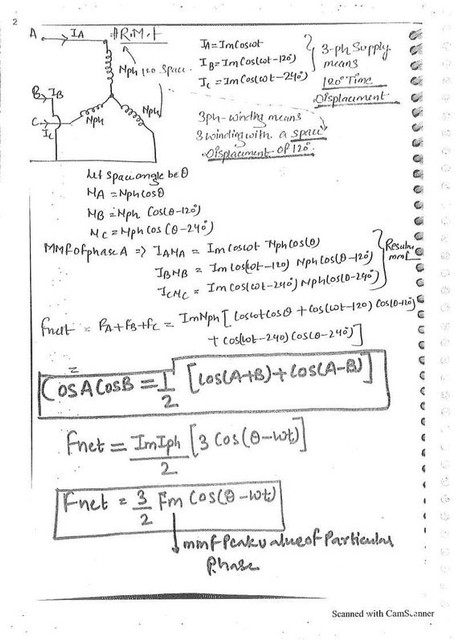 2
A IA # R.M.F
Nph 120 Space
B IB
C Ic
Nph
Nph
IA = Im cosωt
IB = Im cos(ωt-120°)
Ic = Im cos(ωt-240°)
3-ph Supply
means
120° Time
Displacement
3ph-winding means
3 winding with a space
Displacement of 120°.
Let space angle be θ
NA = Nph cosθ
NB = Nph Cos(θ-120°)
Nc = Nph cos(θ-240°)
MMF of phase A => IANA = Im cosωt Nph cos(θ)
IBNB = Im cos(ωt-120) Nph cos(θ-120°)
IcNc = Im cos(ωt-240°) Nph cos(θ-240°)
mmf
Fnet = FA+FB+Fc = ImNph [ cosωt cosθ + cos(ωt-120) cos(θ-120°)
+ cos(ωt-240) cos(θ-240°)]
CosA CosB = 1/2 [cos(A+B)+cos(A-B)]
Fnet = ImIph/2 [3 Cos(θ-ωt)]
Fnet = 3/2 Fm Cos(θ-ωt)
mmf Peak value of Particular
Phase
Scanned with CamScanner